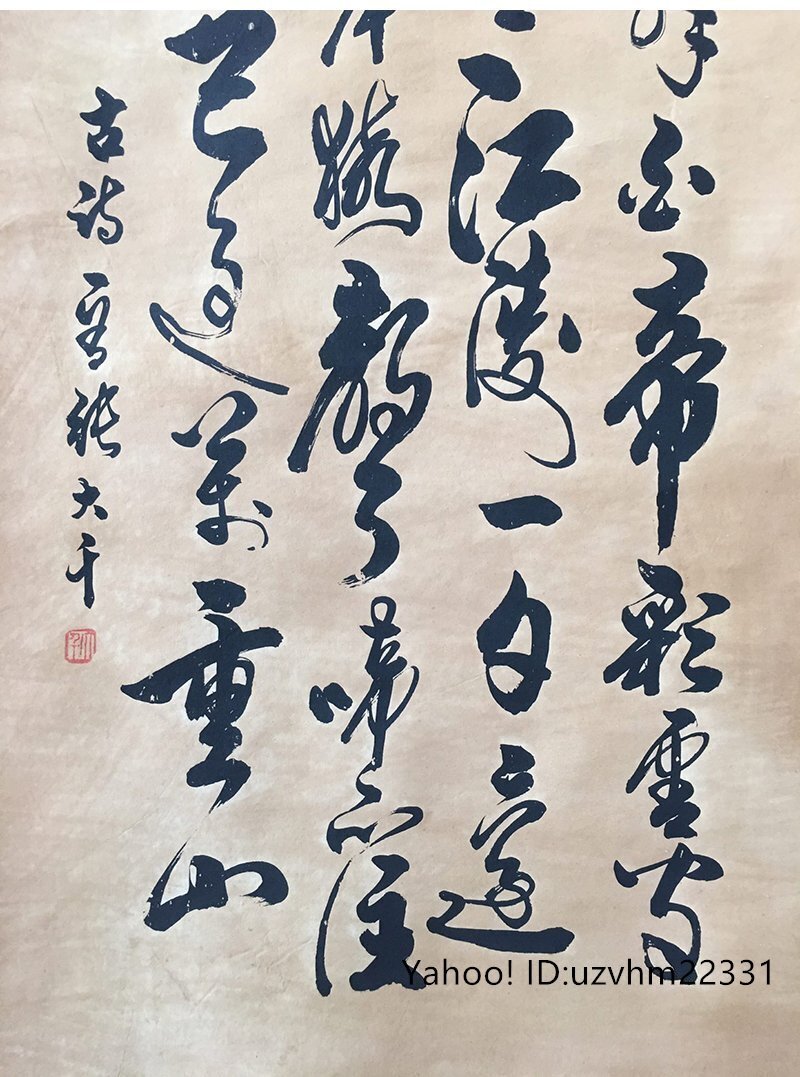 白帝彩雲間
江陵一日還
岸猿聲啼不住
已過萬重山
古詩一首張大千
Yahoo! ID:uzvhm22331